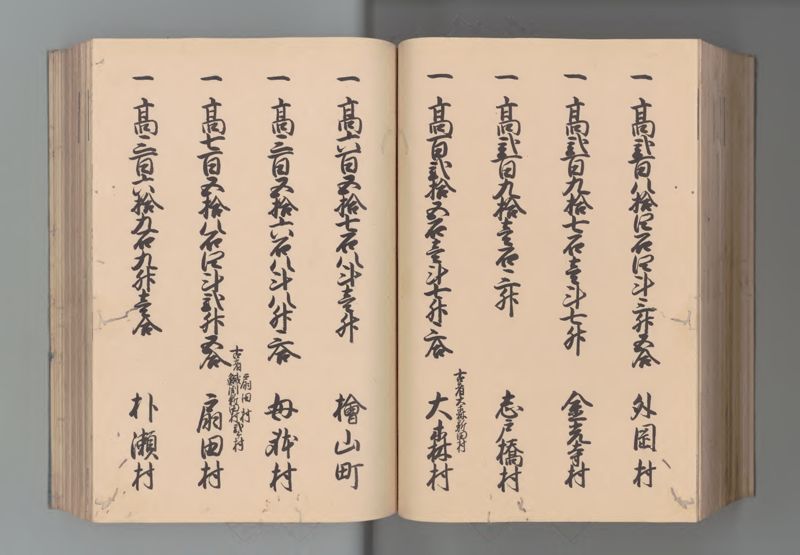 一 高弐百八拾四石四斗三升五合 外岡村
一 高弐百九拾七石壱斗七升 金光寺村
一 高弐百九拾壱石二升 志戸橋村
一 高百弐拾五石壱斗七升二合 大森村
古者大森新田村
一 高六百五拾七石八斗壱升 檜山町
一 高三百五拾六石八斗八升二合 母体村
一 高七百五拾八石四斗弐升五合 扇田村
古者 扇田村
新田村弐ケ村
一 高三百六拾九石九升壱合 朴瀬村